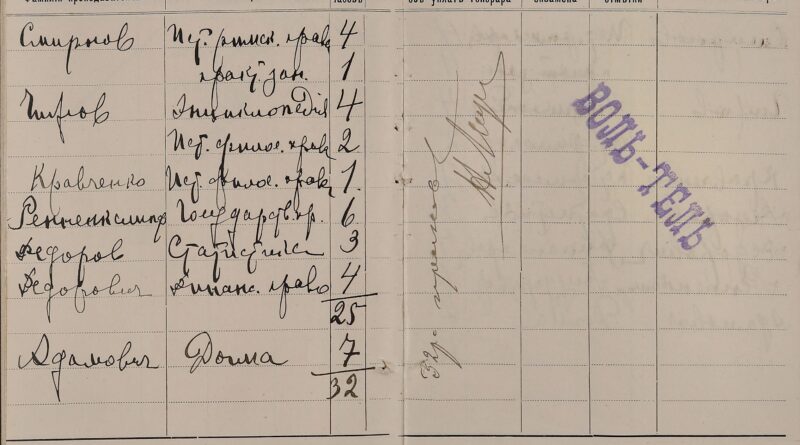 Смирнов Ист. римск. права 4
практ. зан. 1
Энциклопедія 4
Ист. филос. права 2
Кравченко Ист. филос. права 1
Ренненкампф Государств. пр. 6
Федоров Статистика 3
Федорович Финанс. право 4
25
Адамович Догма 7
32
32 р.
ВОЛЬ-ТЕЛЬ